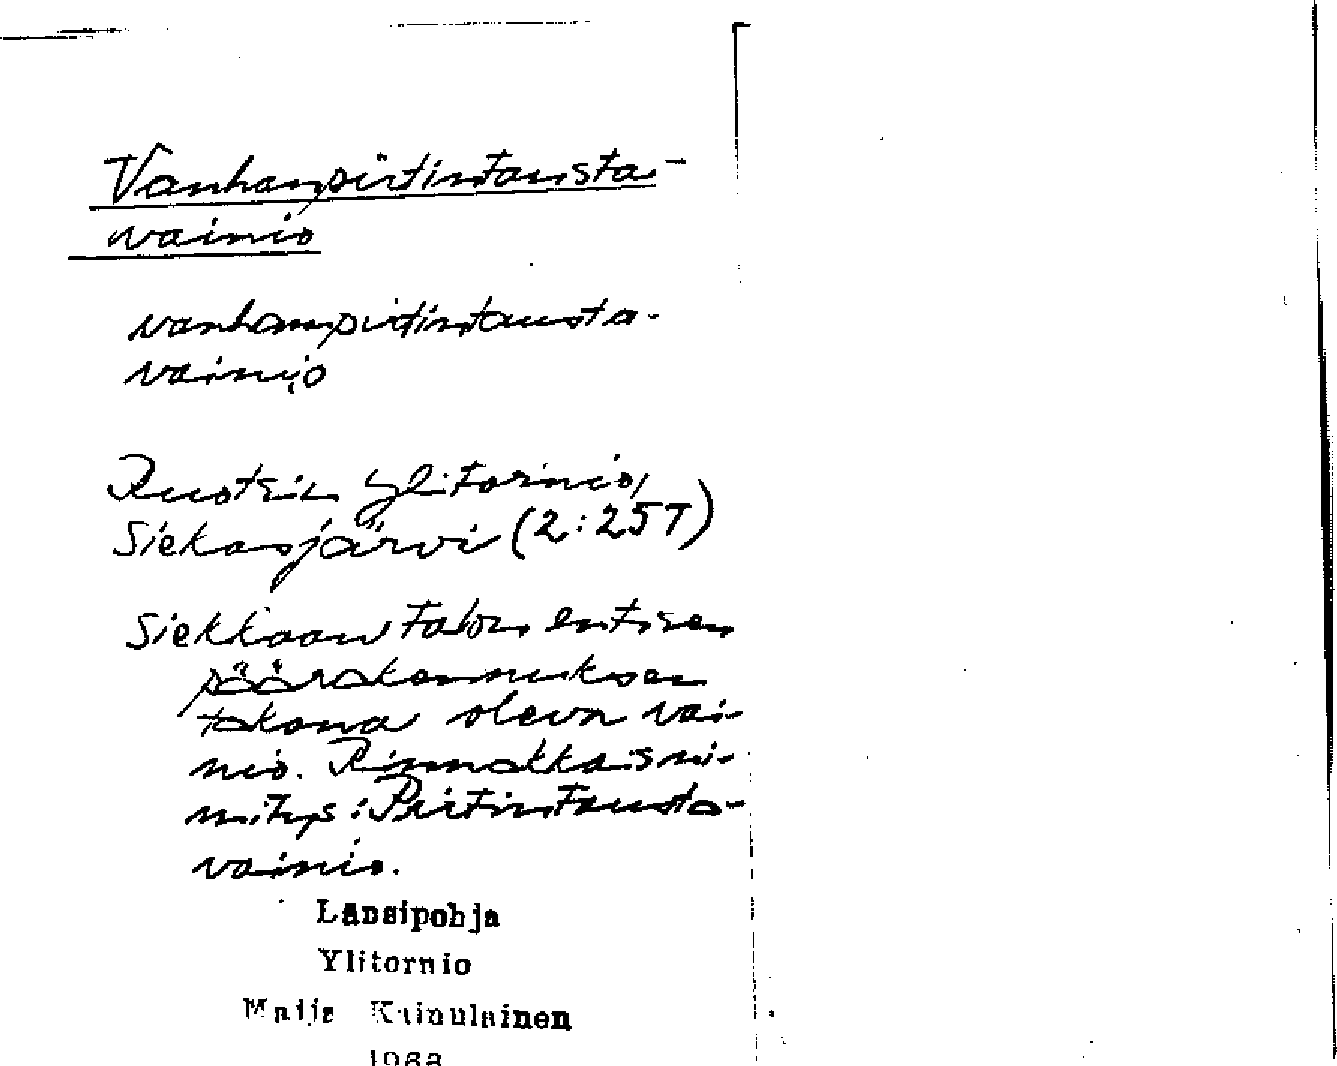 Vanhanpirtintausta-
vainio
vanhampirtintausta-
vainijo
Ruotsin Ylitornio,
Siekasjärvi (2:25T)
Siekkaan talon entisen
päärakennuksen
takana oleva vai-
nio. Rinnakkaisni-
mitys: Pirtintausta-
vainio.
Länsipohja
Ylitornio
Maija Kainulainen